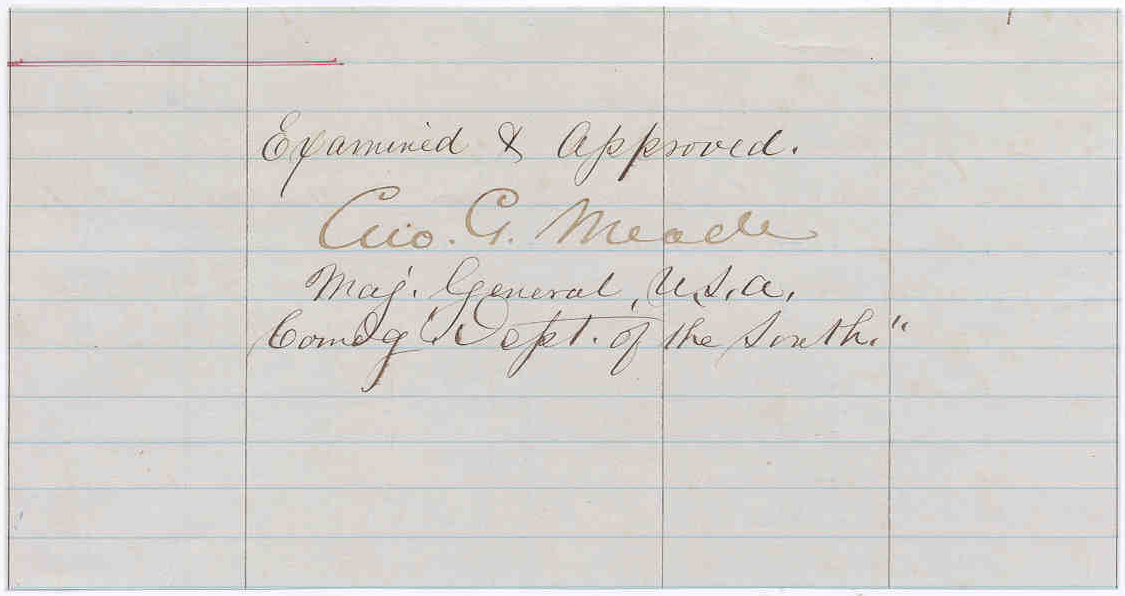 Examined & Approved.
Geo. G. Meade
Maj. General, U.S.A.
Comdg. Dept. of the South."